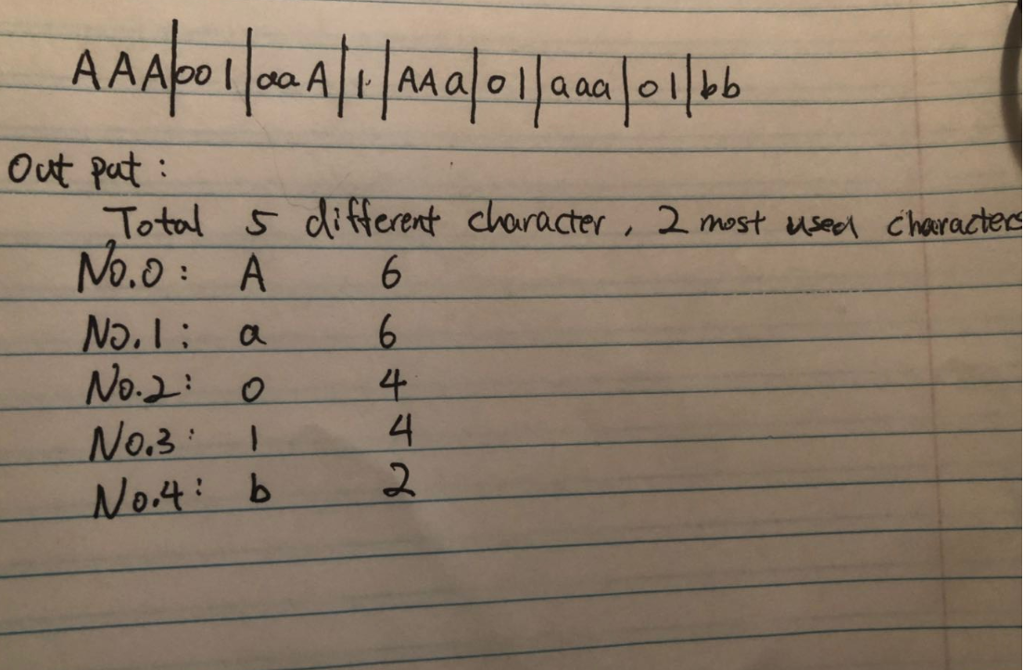 AAA|001|aaA|1.|AAa|01|aaa|01|bb
Out put :
Total 5 different character, 2 most used characters
No.0: A 6
No.1: a 6
No.2: 0 4
No.3: 1 4
No.4: b 2